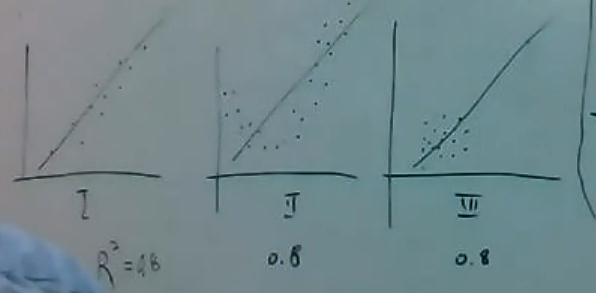 I II III
R² = 0.8 0.8 0.8